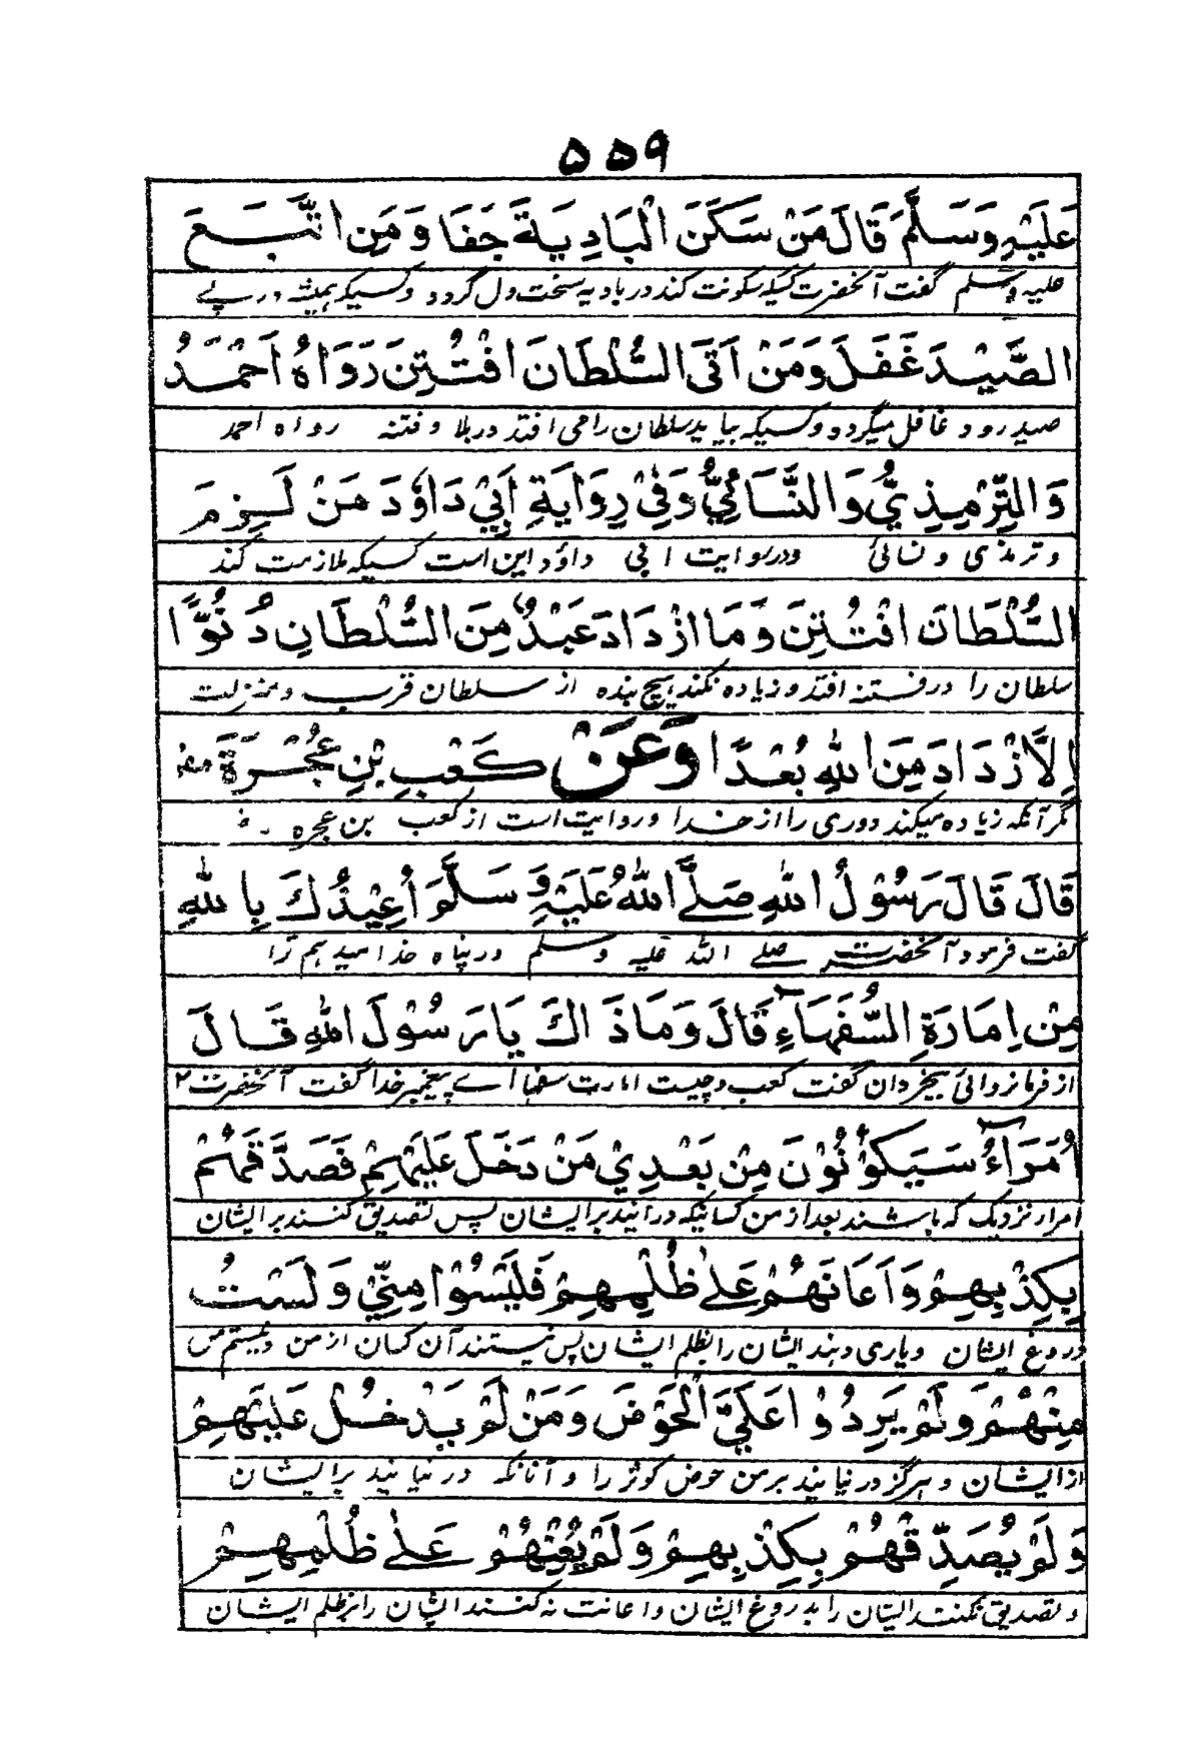 ۵۵۹
عَلَيْهِ وَسَلَّمَ قَالَ مَنْ سَكَنَ الْبَادِيَةَ جَفَا وَمَنِ اتَّبَعَ
علیه وسلم گفت آنحضرت کسیکه سکونت کند در بادیه سخت دل گردد و کسیکه همیشه در پئے
الصَّيْدَ غَفَلَ وَمَنْ اَتَى السُّلْطَانَ افْتُتِنَ رَوَاهُ اَحْمَدُ
صید رود غافل میگردد و کسیکه بیاید سلطان را می افتد در بلا و فتنه رواه احمد
وَالتِّرْمِذِيُّ وَالنَّسَائِيُّ وَفِيْ رِوَايَةِ اَبِيْ دَاوٗدَ مَنْ لَزِمَ
و ترمذی و نسائی ودر روایت ابی داؤد این است کسیکه ملازمت کند
السُّلْطَانَ افْتُتِنَ وَمَا ازْدَادَ عَبْدٌ مِنَ السُّلْطَانِ دُنُوًّا
سلطان را در فتنه افتد و زیاده نکند هیچ بنده از سلطان قرب و منزلت
اِلَّا ازْدَادَ مِنَ اللهِ بُعْدًا وَعَنْ كَعْبِ بْنِ عُجْرَةَ
مگر آنکه زیاده میکند دوری را از خدا و روایت است از کعب بن عجره
قَالَ قَالَ رَسُوْلُ اللهِ صَلَّے اللهُ عَلَيْهِ وَسَلَّمَ اُعِيْذُكَ بِاللهِ
گفت فرمود آنحضرت صلے الله علیه وسلم در پناه خدا میدهم ترا
مِنْ اِمَارَةِ السُّفَهَآءِ قَالَ وَمَا ذَاكَ يَا رَسُوْلَ اللهِ قَالَ
از فرمانروائی بیخردان گفت کعب و چیست امارت سفها اے پیغمبر خدا گفت آنحضرت
اُمَرَآءُ سَيَكُوْنُوْنَ مِنْ بَعْدِيْ مَنْ دَخَلَ عَلَيْهِمْ فَصَدَّقَهُمْ
امرا نزدیک که باشند بعد از من کسانیکه در آیند بر ایشان پس تصدیق کنند بر ایشان
بِكِذْبِهِمْ وَاَعَانَهُمْ عَلٰے ظُلْمِهِمْ فَلَيْسُوْا مِنِّيْ وَلَسْتُ
دروغ ایشان و یاری دهند ایشان را بظلم ایشان پس نیستند آن کسان از من و نیستم من
مِنْهُمْ وَلَمْ يَرِدُوْا عَلَيَّ الْحَوْضَ وَمَنْ لَمْ يَدْخُلْ عَلَيْهِمْ
از ایشان و هرگز در نیایند بر من حوض کوثر را و آنانکه در نیایند بر ایشان
وَلَمْ يُصَدِّقْهُمْ بِكِذْبِهِمْ وَلَمْ يُعِنْهُمْ عَلٰے ظُلْمِهِمْ
و تصدیق نکنند ایشان را بدروغ ایشان و اعانت نه کنند ایشان را بر ظلم ایشان